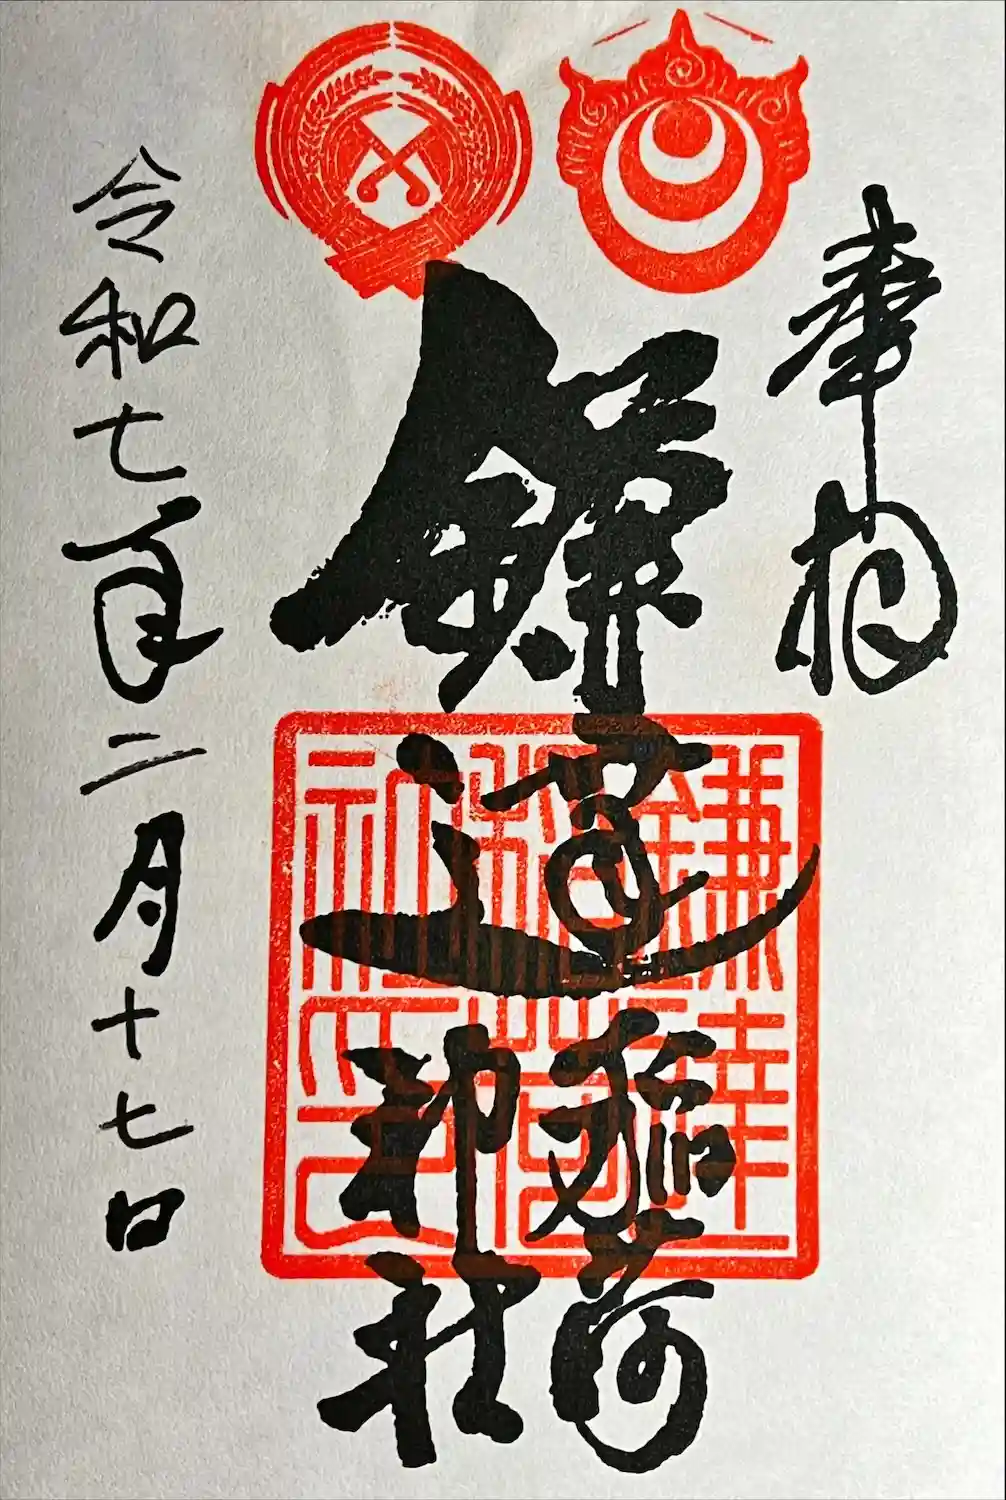 奉拝
鎌達
稲荷
神社
鎌達
稲荷
社印
令和七年二月十七日